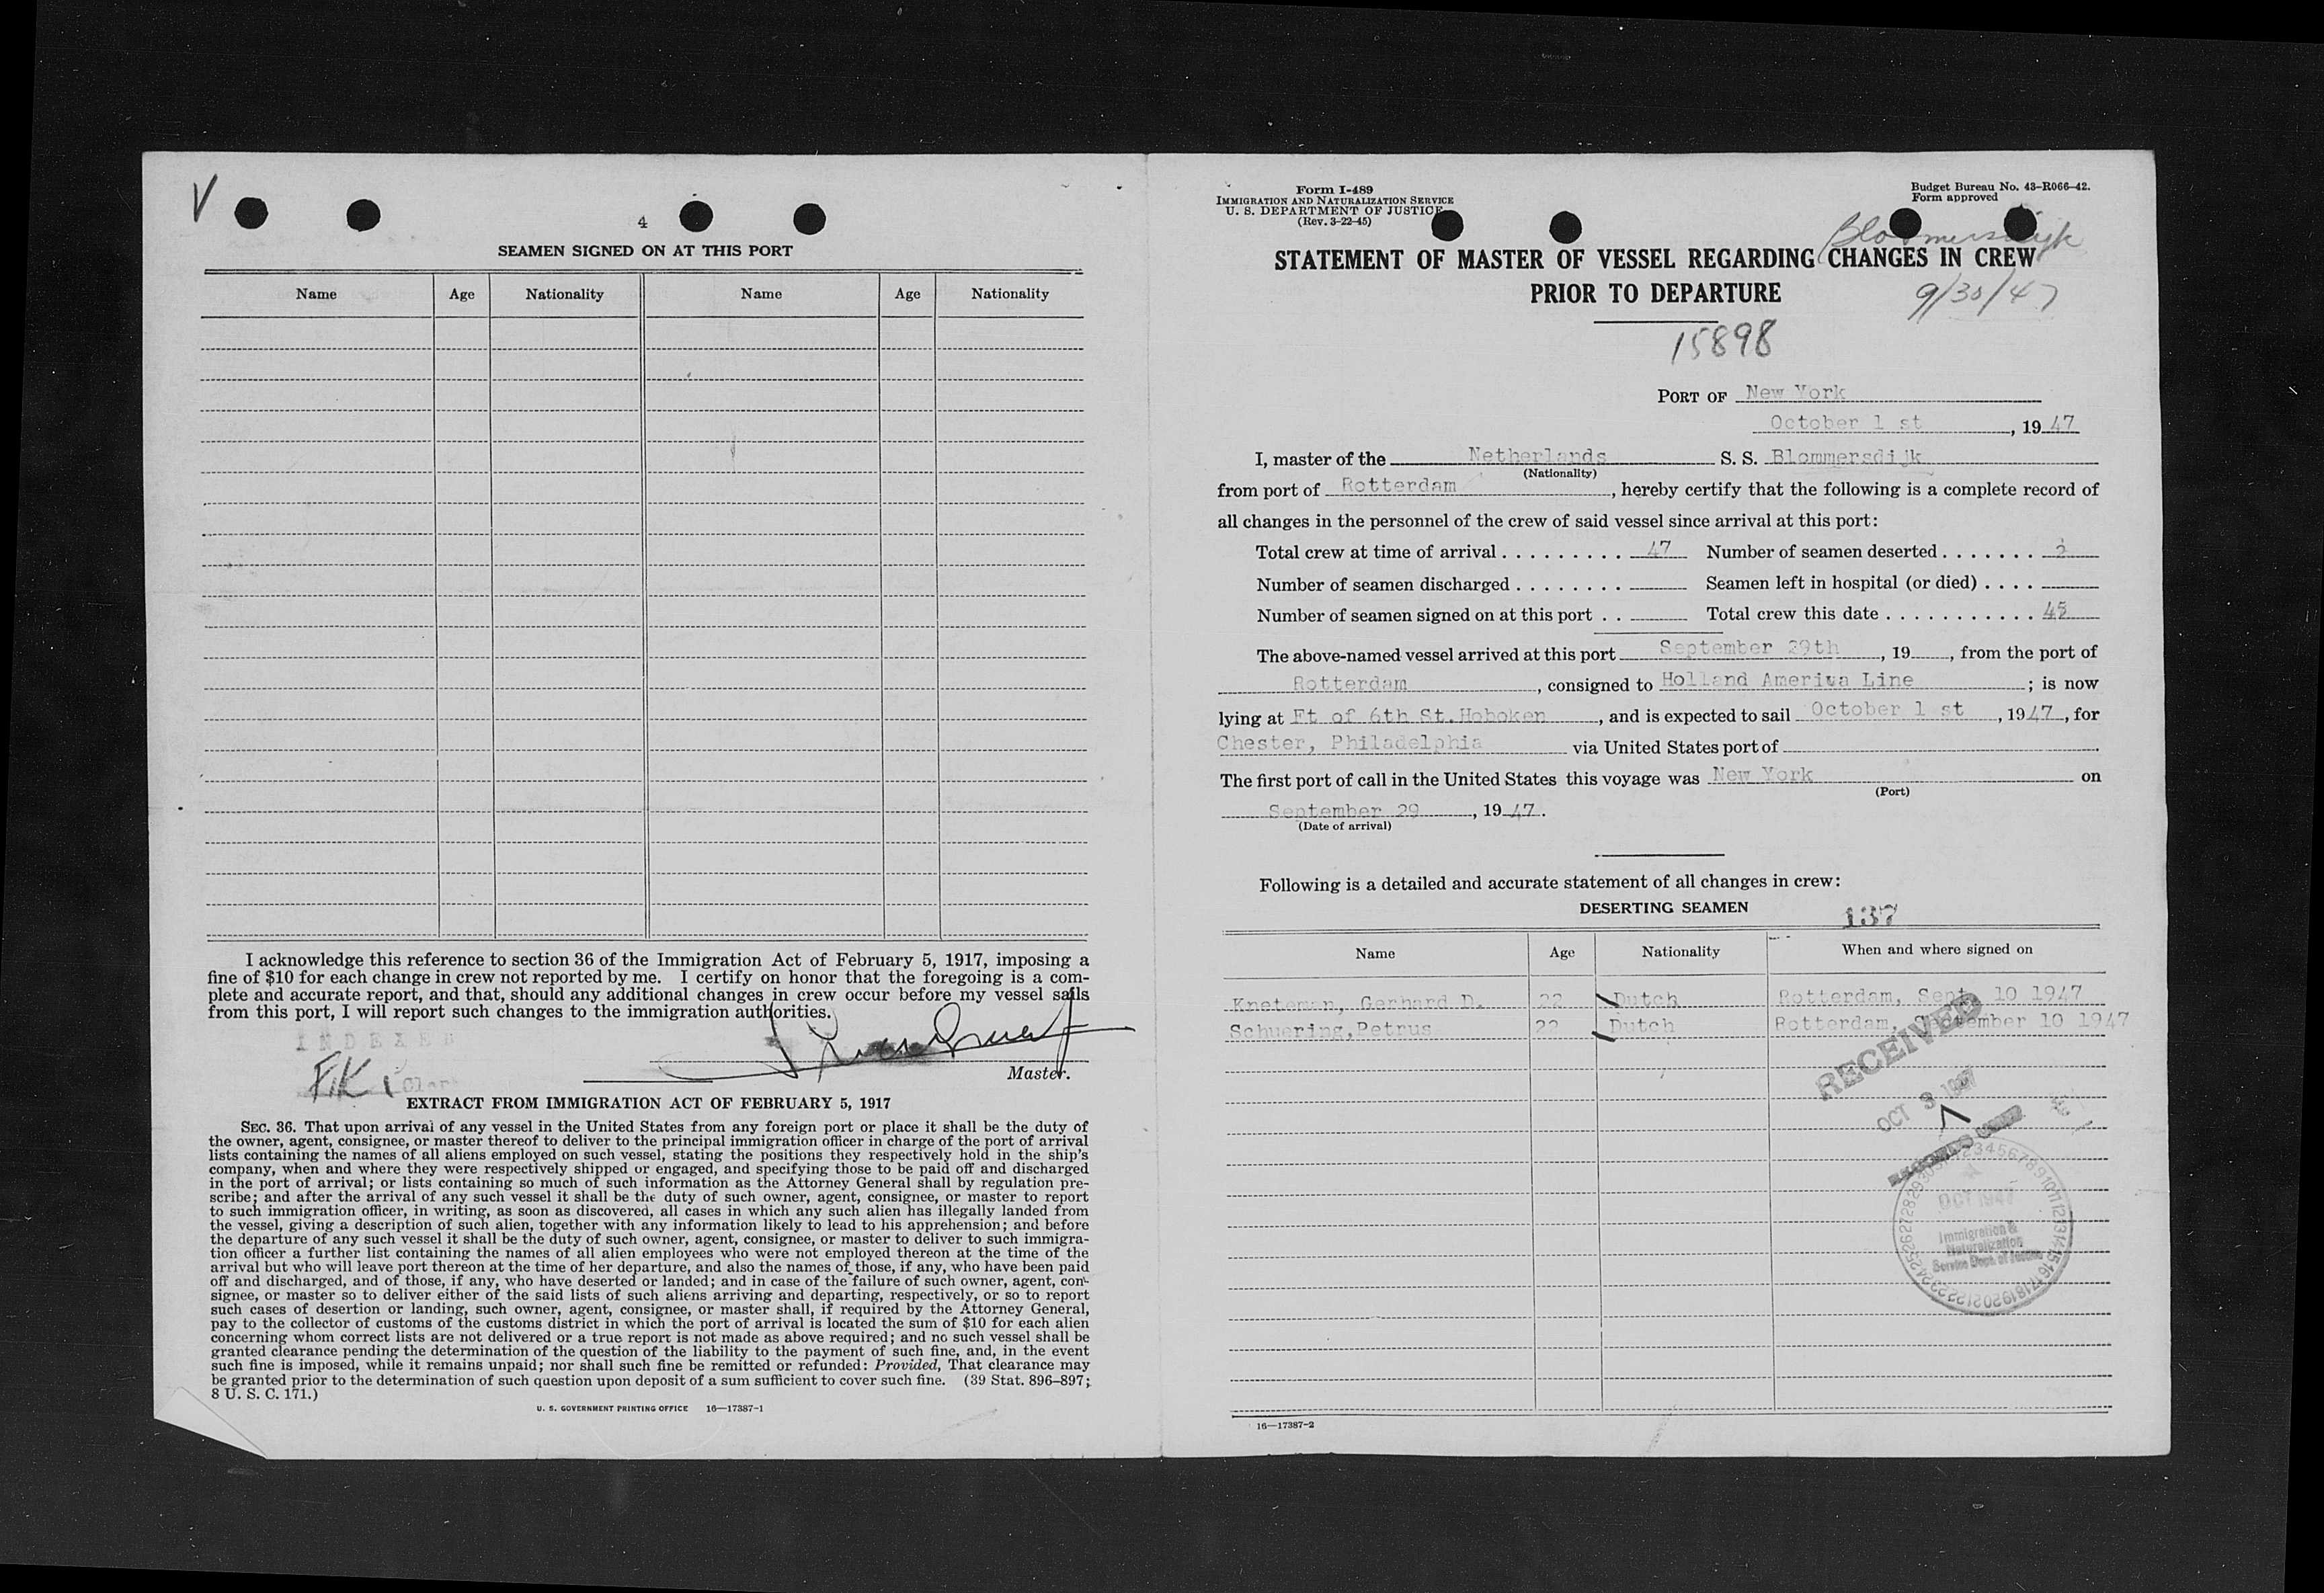 V
4
SEAMEN SIGNED ON AT THIS PORT
Name Age Nationality Name Age Nationality
I acknowledge this reference to section 36 of the Immigration Act of February 5, 1917, imposing a
fine of $10 for each change in crew not reported by me. I certify on honor that the foregoing is a com-
plete and accurate report, and that, should any additional changes in crew occur before my vessel sails
from this port, I will report such changes to the immigration authorities.
INDEXED
Master.
EXTRACT FROM IMMIGRATION ACT OF FEBRUARY 5, 1917
SEC. 36. That upon arrival of any vessel in the United States from any foreign port or place it shall be the duty of
the owner, agent, consignee, or master thereof to deliver to the principal immigration officer in charge of the port of arrival
lists containing the names of all aliens employed on such vessel, stating the positions they respectively hold in the ship's
company, when and where they were respectively shipped or engaged, and specifying those to be paid off and discharged
in the port of arrival; or lists containing so much of such information as the Attorney General shall by regulation pre-
scribe; and after the arrival of any such vessel it shall be the duty of such owner, agent, consignee, or master to report
to such immigration officer, in writing, as soon as discovered, all cases in which any such alien has illegally landed from
the vessel, giving a description of such alien, together with any information likely to lead to his apprehension; and before
the departure of any such vessel it shall be the duty of such owner, agent, consignee, or master to deliver to such immigra-
tion officer a further list containing the names of all alien employees who were not employed thereon at the time of the
arrival but who will leave port thereon at the time of her departure, and also the names of those, if any, who have been paid
off and discharged, and of those, if any, who have deserted or landed; and in case of the failure of such owner, agent, con-
signee, or master so to deliver either of the said lists of such aliens arriving and departing, respectively, or so to report
such cases of desertion or landing, such owner, agent, consignee, or master shall, if required by the Attorney General,
pay to the collector of customs of the customs district in which the port of arrival is located the sum of $10 for each alien
concerning whom correct lists are not delivered or a true report is not made as above required; and no such vessel shall be
granted clearance pending the determination of the question of the liability to the payment of such fine, and, in the event
such fine is imposed, while it remains unpaid; nor shall such fine be remitted or refunded: Provided, That clearance may
be granted prior to the determination of such question upon deposit of a sum sufficient to cover such fine. (39 Stat. 896–897;
8 U. S. C. 171.)
U. S. GOVERNMENT PRINTING OFFICE 16—17387-1
Form I-489
IMMIGRATION AND NATURALIZATION SERVICE
U. S. DEPARTMENT OF JUSTICE
(Rev. 3-22-45)
Budget Bureau No. 43-R066-42.
Form approved
Bloomersdijk
STATEMENT OF MASTER OF VESSEL REGARDING CHANGES IN CREW
PRIOR TO DEPARTURE
9/30/47
15898
PORT OF New York
October 1 st, 1947
I, master of the Netherlands S. S. Blommersdijk
(Nationality)
from port of Rotterdam, hereby certify that the following is a complete record of
all changes in the personnel of the crew of said vessel since arrival at this port:
Total crew at time of arrival . . . . . . . . . 47 Number of seamen deserted . . . . . . . 2
Number of seamen discharged . . . . . . . . Seamen left in hospital (or died) . . . .
Number of seamen signed on at this port . . Total crew this date . . . . . . . . . . . 45
The above-named vessel arrived at this port September 29th, 19, from the port of
Rotterdam, consigned to Holland Ameriva Line; is now
lying at Ft of 6th St.Hoboken, and is expected to sail October 1 st, 1947, for
Chester, Philadelphia via United States port of
The first port of call in the United States this voyage was New York on
(Port)
September 29, 1947.
(Date of arrival)
Following is a detailed and accurate statement of all changes in crew:
DESERTING SEAMEN
137
Name Age Nationality When and where signed on
Kneteman, Gerhard D. 22 Dutch Rotterdam, Sept. 10 1947
Schuering,Petrus 22 Dutch Rotterdam, September 10 1947
RECEIVED
OCT 3 1947
OCT 1947
Immigration &
Naturalization
Service Dept. of Justice
16—17387-2